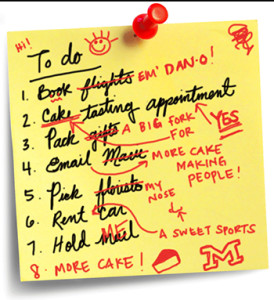 Hi!
To do
1. Book flights EM' DAN-O!
2. Cake tasting appointment
YES
3. Pack gifts A BIG FORK FOR
4. Email Mavis MORE CAKE MAKING PEOPLE!
5. Pick florists MY NOSE
6. Rent car ME A SWEET SPORTS
7. Hold mail
8. MORE CAKE!
M